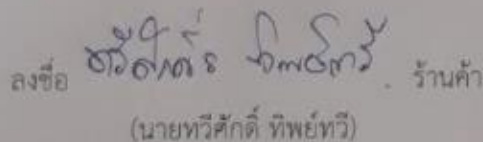 ลงชื่อ ทวีศักดิ์ ทิพย์ทวี. ร้านค้า
(นายทวีศักดิ์ ทิพย์ทวี)